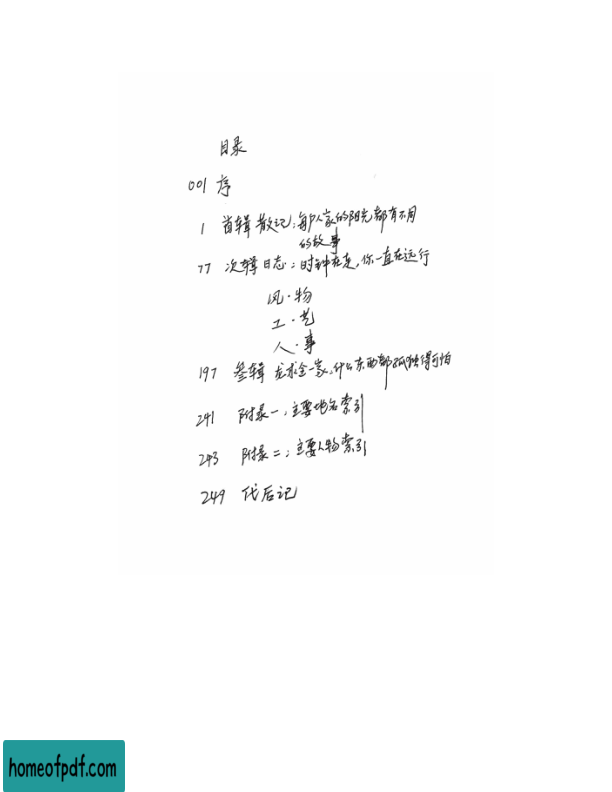 目录
001 序
1 首辑 散记:每户人家的阳光都有不同
的故事
77 次辑 日志:时钟在走,你一直在远行
风·物
工·艺
人·事
197 叁辑 龙求全一家,什么东西都孤独得可怕
241 附录一:主要地名索引
243 附录二:主要人物索引
249 代后记
homeofpdf.com